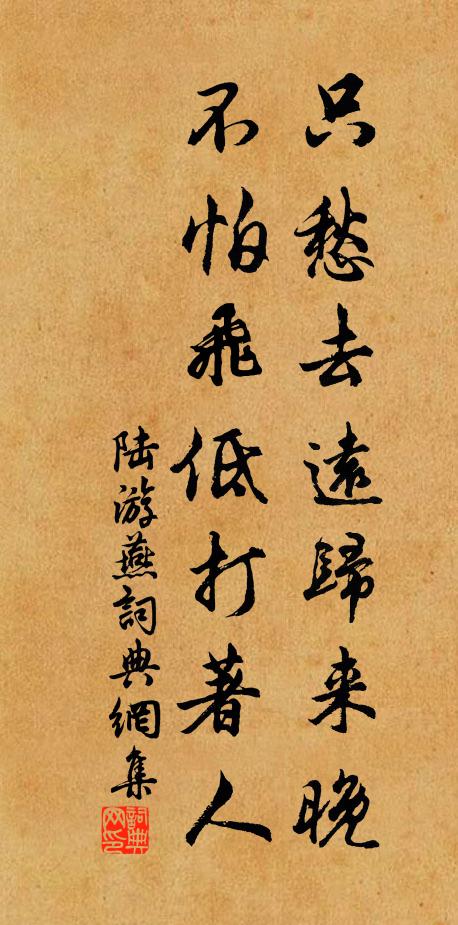 只愁去遠歸来晚
不怕飛低打著人
陆游燕詞典網集
詞典网印